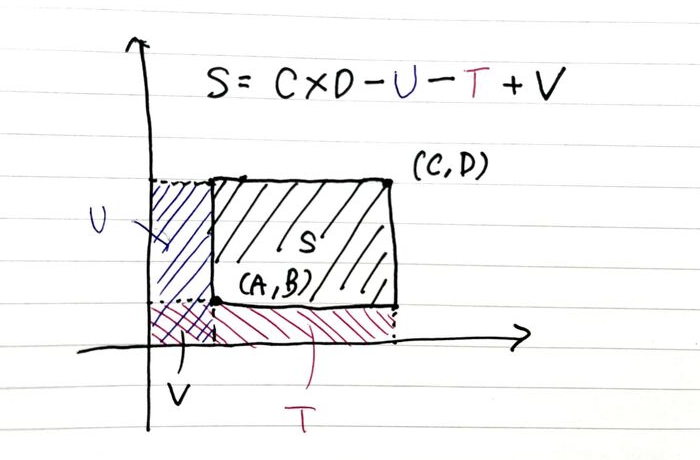 S= C×D-U-T+V
(C,D)
U
S
(A,B)
V
T